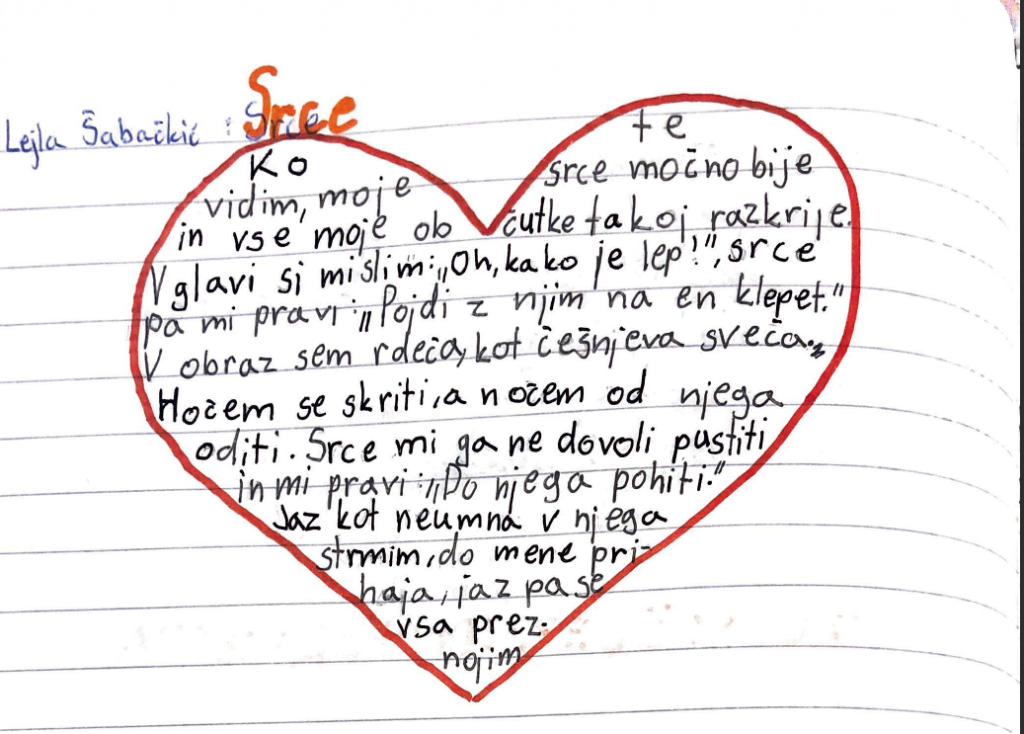 Lejla Šabačkić : Srce
Ko te
vidim, moje srce močno bije
in vse moje ob čutke takoj razkrije.
V glavi si mislim: „Oh, kako je lep!", srce
pa mi pravi: „Pojdi z njim na en klepet."
V obraz sem rdeča, kot češnjeva sveča.
Hočem se skriti, a nočem od njega
oditi. Srce mi ga ne dovoli pustiti
in mi pravi: „Do njega pohiti."
Jaz kot neumna v njega
strmim, do mene pri-
haja, jaz pa se
vsa prez-
nojim